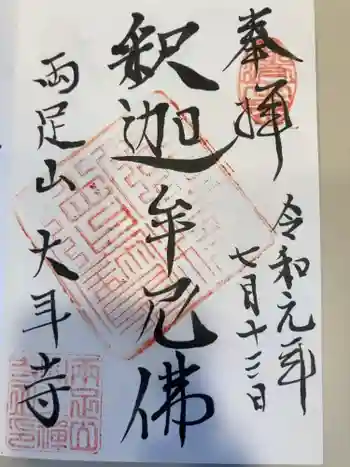 奉拝
令和元年
七月十三日
釈迦牟尼仏
両足山
大斗寺